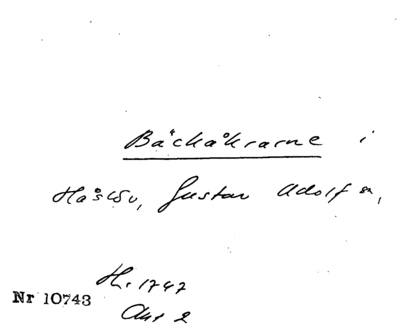 Bäckåkrarne i
Gustav Adolf sn,
H. 1747
Nr 10743
Akt 2